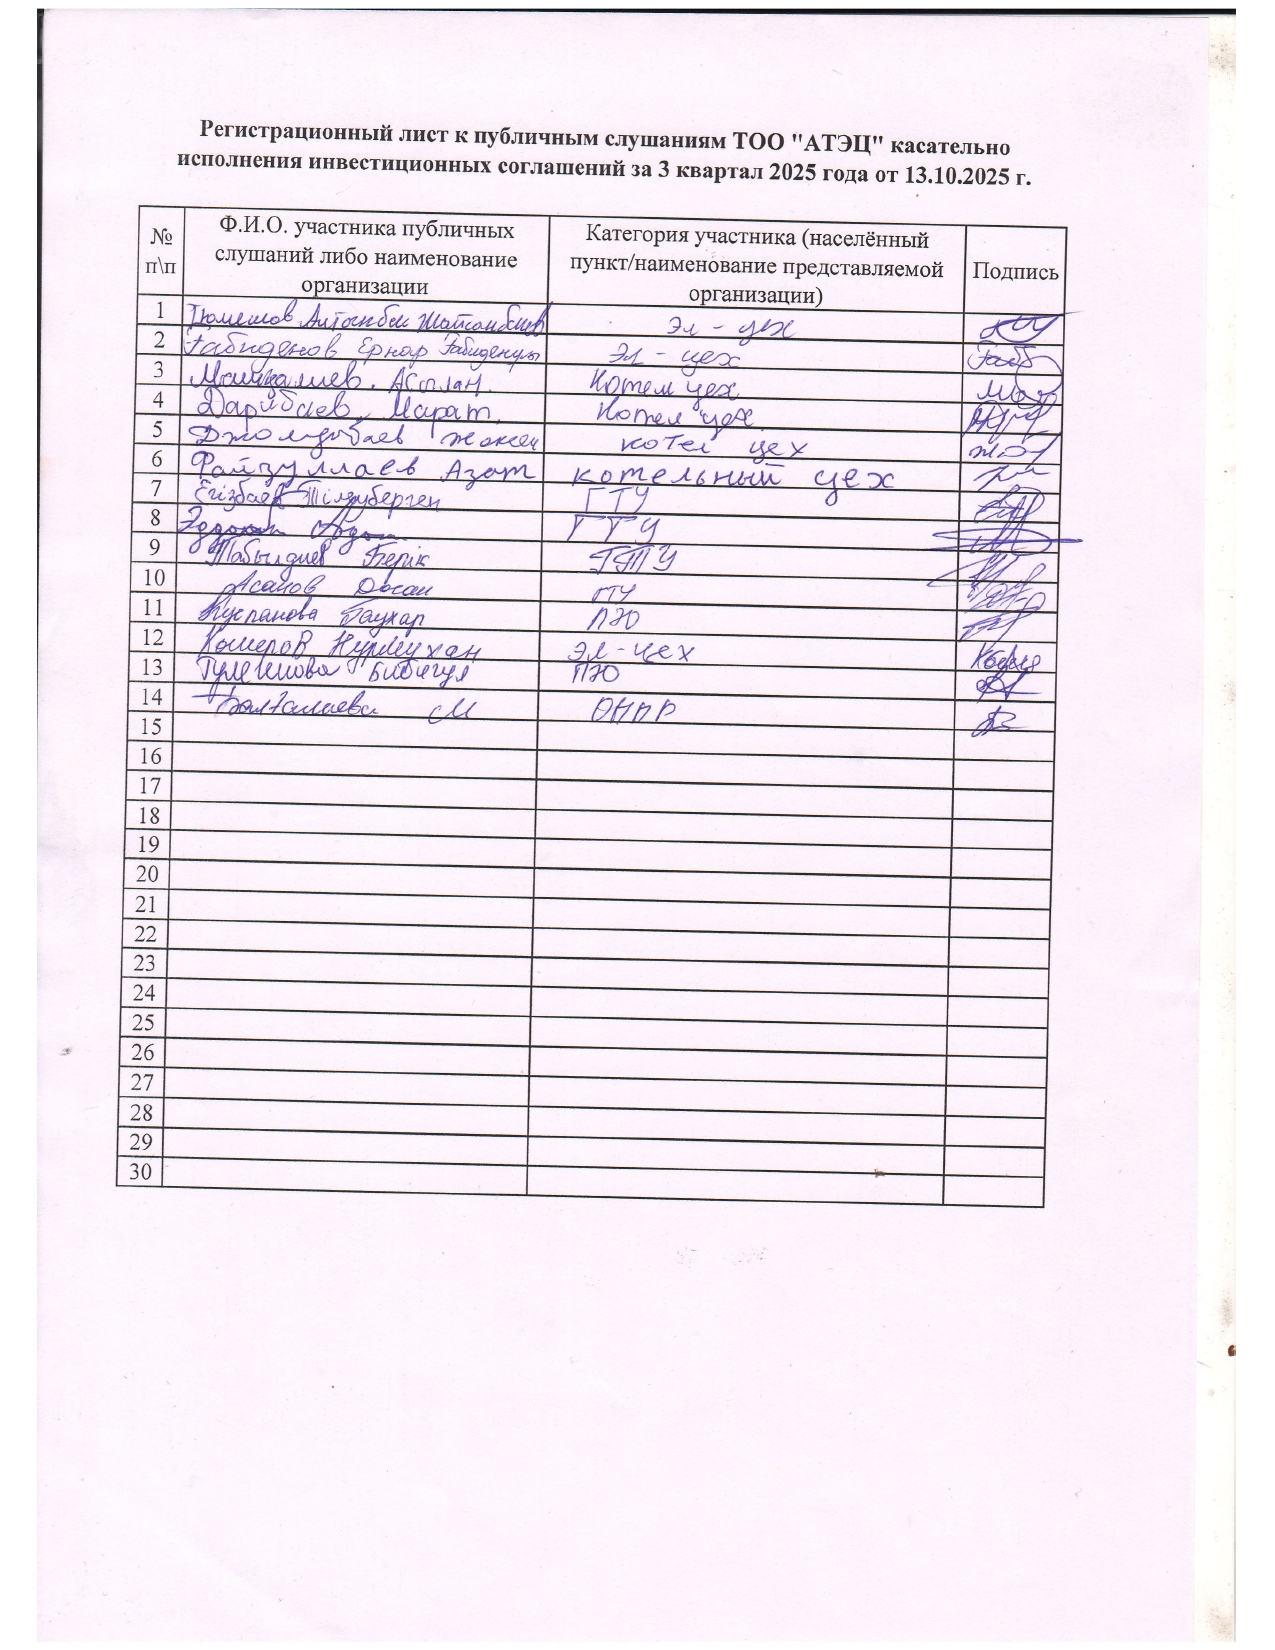 Регистрационный лист к публичным слушаниям ТОО "АТЭЦ" касательно
исполнения инвестиционных соглашений за 3 квартал 2025 года от 13.10.2025 г.
№ п\п Ф.И.О. участника публичных слушаний либо наименование организации Категория участника (населённый пункт/наименование представляемой организации) Подпись
1 Эл - цех
2 Габиденов Ернар Габиденулы Эл - цех
3 Асплан. Котел цех
4 Дарибаев Марат. Котел цех.
5 котел цех
6 Файзуллаев Азат котельный цех
7 Егізбаев ГТУ
8 ГТУ
9 Табылдиев Берік ГТУ
10 Асанов Досан ГТУ
11 Куспанова Гаухар ПЭО
12 Кошеров Нурмухан Эл-цех
13 Тулешова Бибигул ПЭО
14 М
15
16
17
18
19
20
21
22
23
24
25
26
27
28
29
30